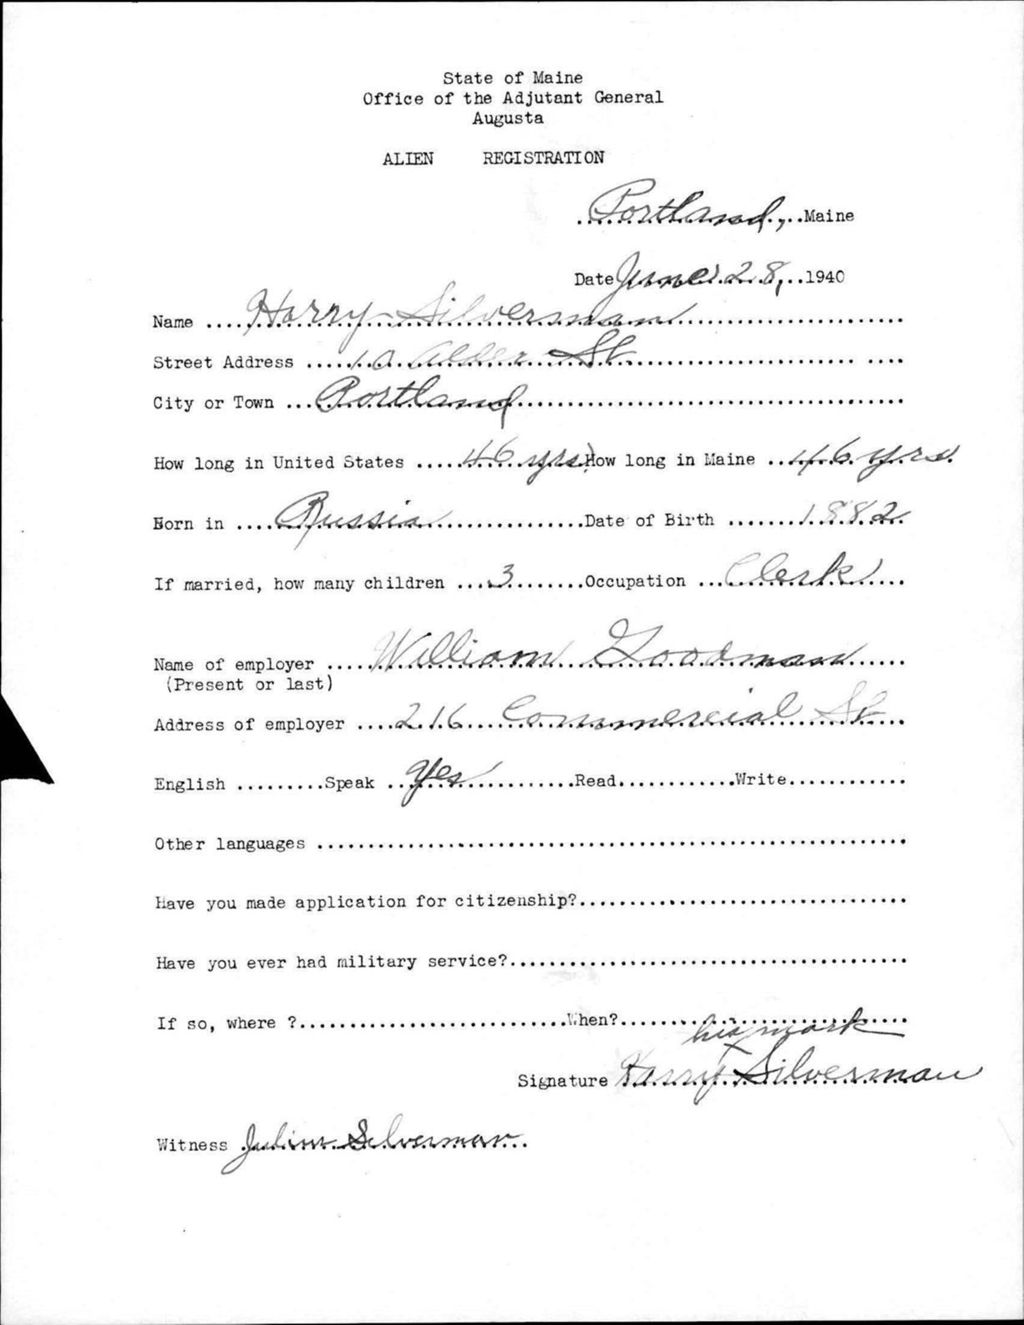 State of Maine
Office of the Adjutant General
Augusta
ALIEN REGISTRATION
Portland, Maine
Date June 28, 1940
Name Harry Silverman
Street Address 10 Alder St
City or Town Portland
How long in United States 46 yrs. How long in Maine 46 yrs.
Born in Russia Date of Birth 1882
If married, how many children 3 Occupation Clerk
Name of employer William Goodman
(Present or last)
Address of employer 216 Commercial St
English Speak Yes Read Write
Other languages
Have you made application for citizenship?
Have you ever had military service?
If so, where ? When?
his mark
X
Signature Harry Silverman
Witness Julius Silverman